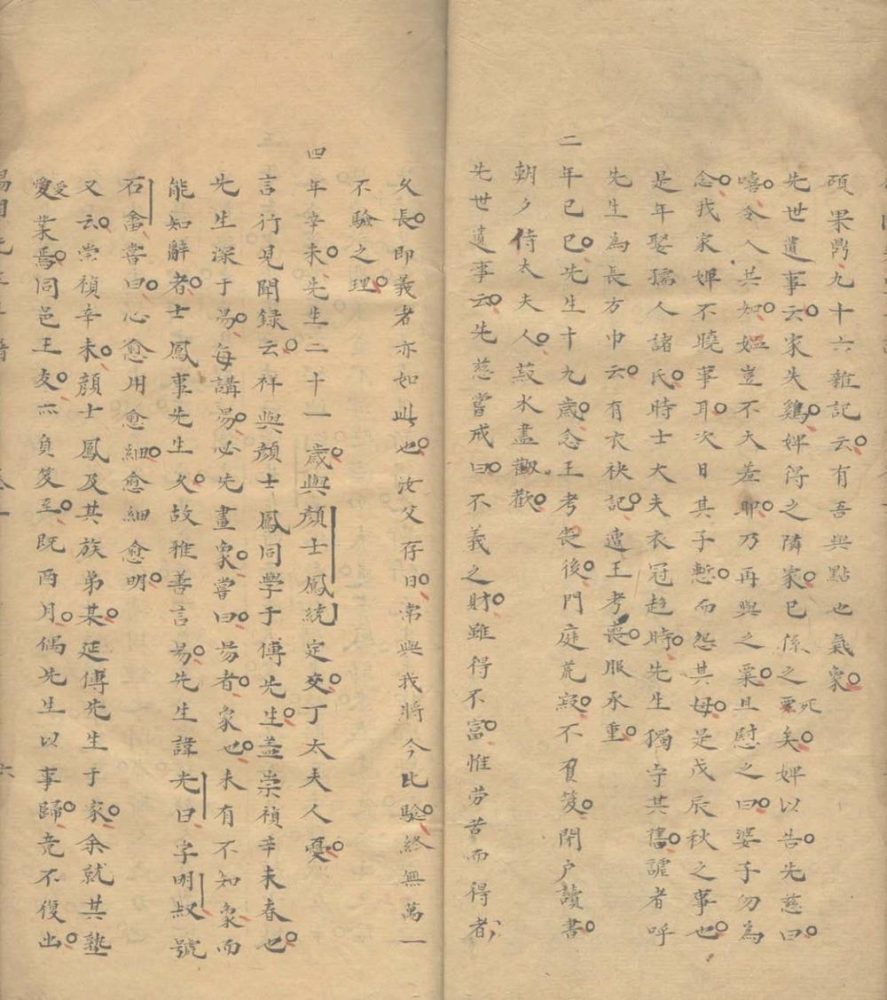 碩果鼎九十六雜記云有吾與點也氣象
先世遺事云家失鷄婢得之隣家已係之死矣婢以告先慈曰
嘻令人共如媪豈不大羞耶乃再與之粟且慰之曰婆子勿為
念我家婢不曉事耳次日其子慙而怨其母是戊辰秋之事也
是年娶孺人諸氏時士大夫衣冠趋時先生獨守其舊謔者呼
先生為長方巾云有衣袂記遭王考喪服承重
二年己巳先生十九歲念王考喪後門庭荒寂不負笈閉户讀書
朝夕侍太夫人菽水盡歡
先世遺事云先慈嘗戒曰不義之財雖得不富惟劳苦而得者
久長即義者亦如此也汝父存日常與我將今比驗終無萬一
不驗之理
四年辛未先生二十一歲與顏士鳳統定交丁太夫人憂
言行見聞録云祥與顏士鳳同學于傅先生盖崇禎辛未春也
先生深于易每講易必先畫象嘗曰易者象也未有不知象而
能知辭者士鳳事先生久故雅善言易先生諱光曰字明叔號
石畬嘗曰心愈用愈細愈細愈明
又云崇禎辛未顏士鳳及其族弟某延傅先生于家余就其塾
受業焉同邑王友亦負笈至既両月偶先生以事歸竟不復出